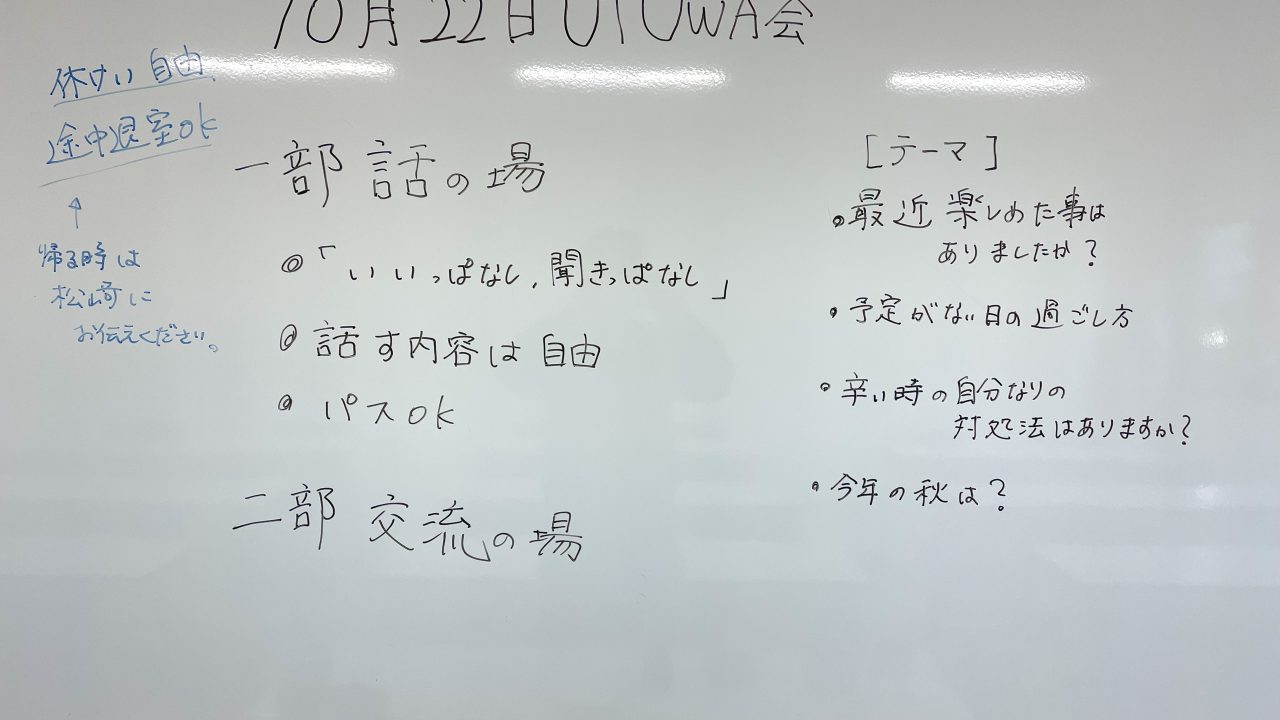 10月22日UTUWA会
休けい自由、
途中退室OK
↑
帰る時は
松崎に
お伝えください。
一部 話の場
◎「いいっぱなし,聞きっぱなし」
◎ 話す内容は自由
◎ パスOK
二部 交流の場
[テーマ]
・最近楽しめた事は
ありましたか?
・予定がない日の過ごし方
・辛い時の自分なりの
対処法はありますか?
・今年の秋は?